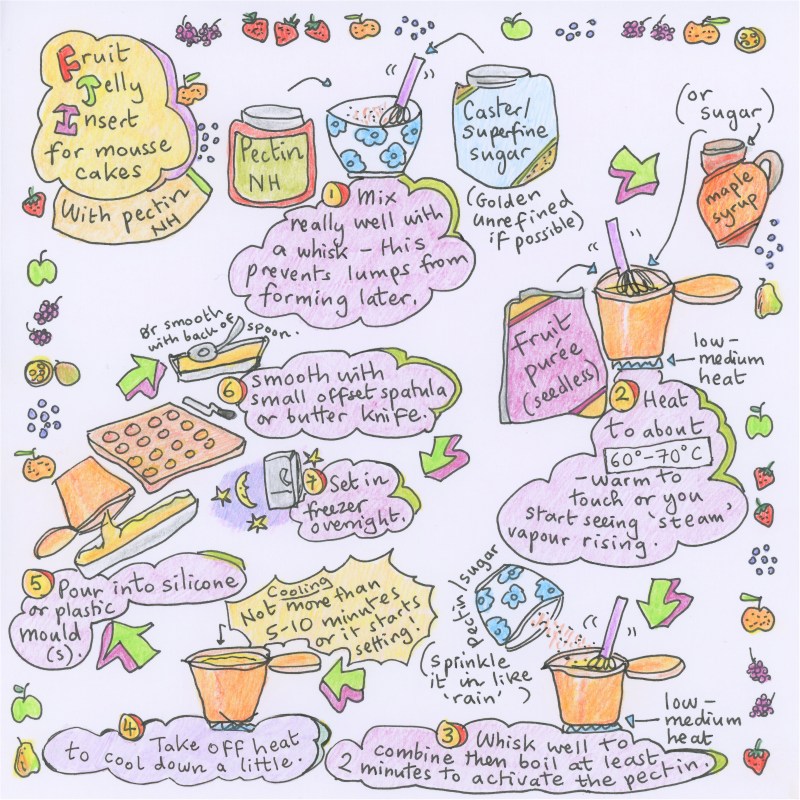 Fruit
Jelly
Insert
for mousse
cakes
With pectin
NH
Pectin
NH
Caster/
superfine
sugar
(Golden
unrefined
if possible)
1 Mix
really well with
a whisk – this
prevents lumps from
forming later.
(or
sugar)
maple
syrup
Fruit
purée
(seedless)
low-
medium
heat
2 Heat
to about
60°-70°C
- warm to
touch or you
start seeing 'steam'
vapour rising.
pectin/sugar
(Sprinkle
it in like
'rain')
low-
medium
heat
3 Whisk well to
combine then boil at least
2 minutes to activate the pectin.
Cooling
Not more than
5-10 minutes
or it starts
setting!
4 Take off heat
to cool down a little.
5 Pour into silicone
or plastic
mould
(s).
Or smooth
with back of spoon.
6 smooth with
small offset spatula
or butter knife.
7 Set in
freezer
overnight.